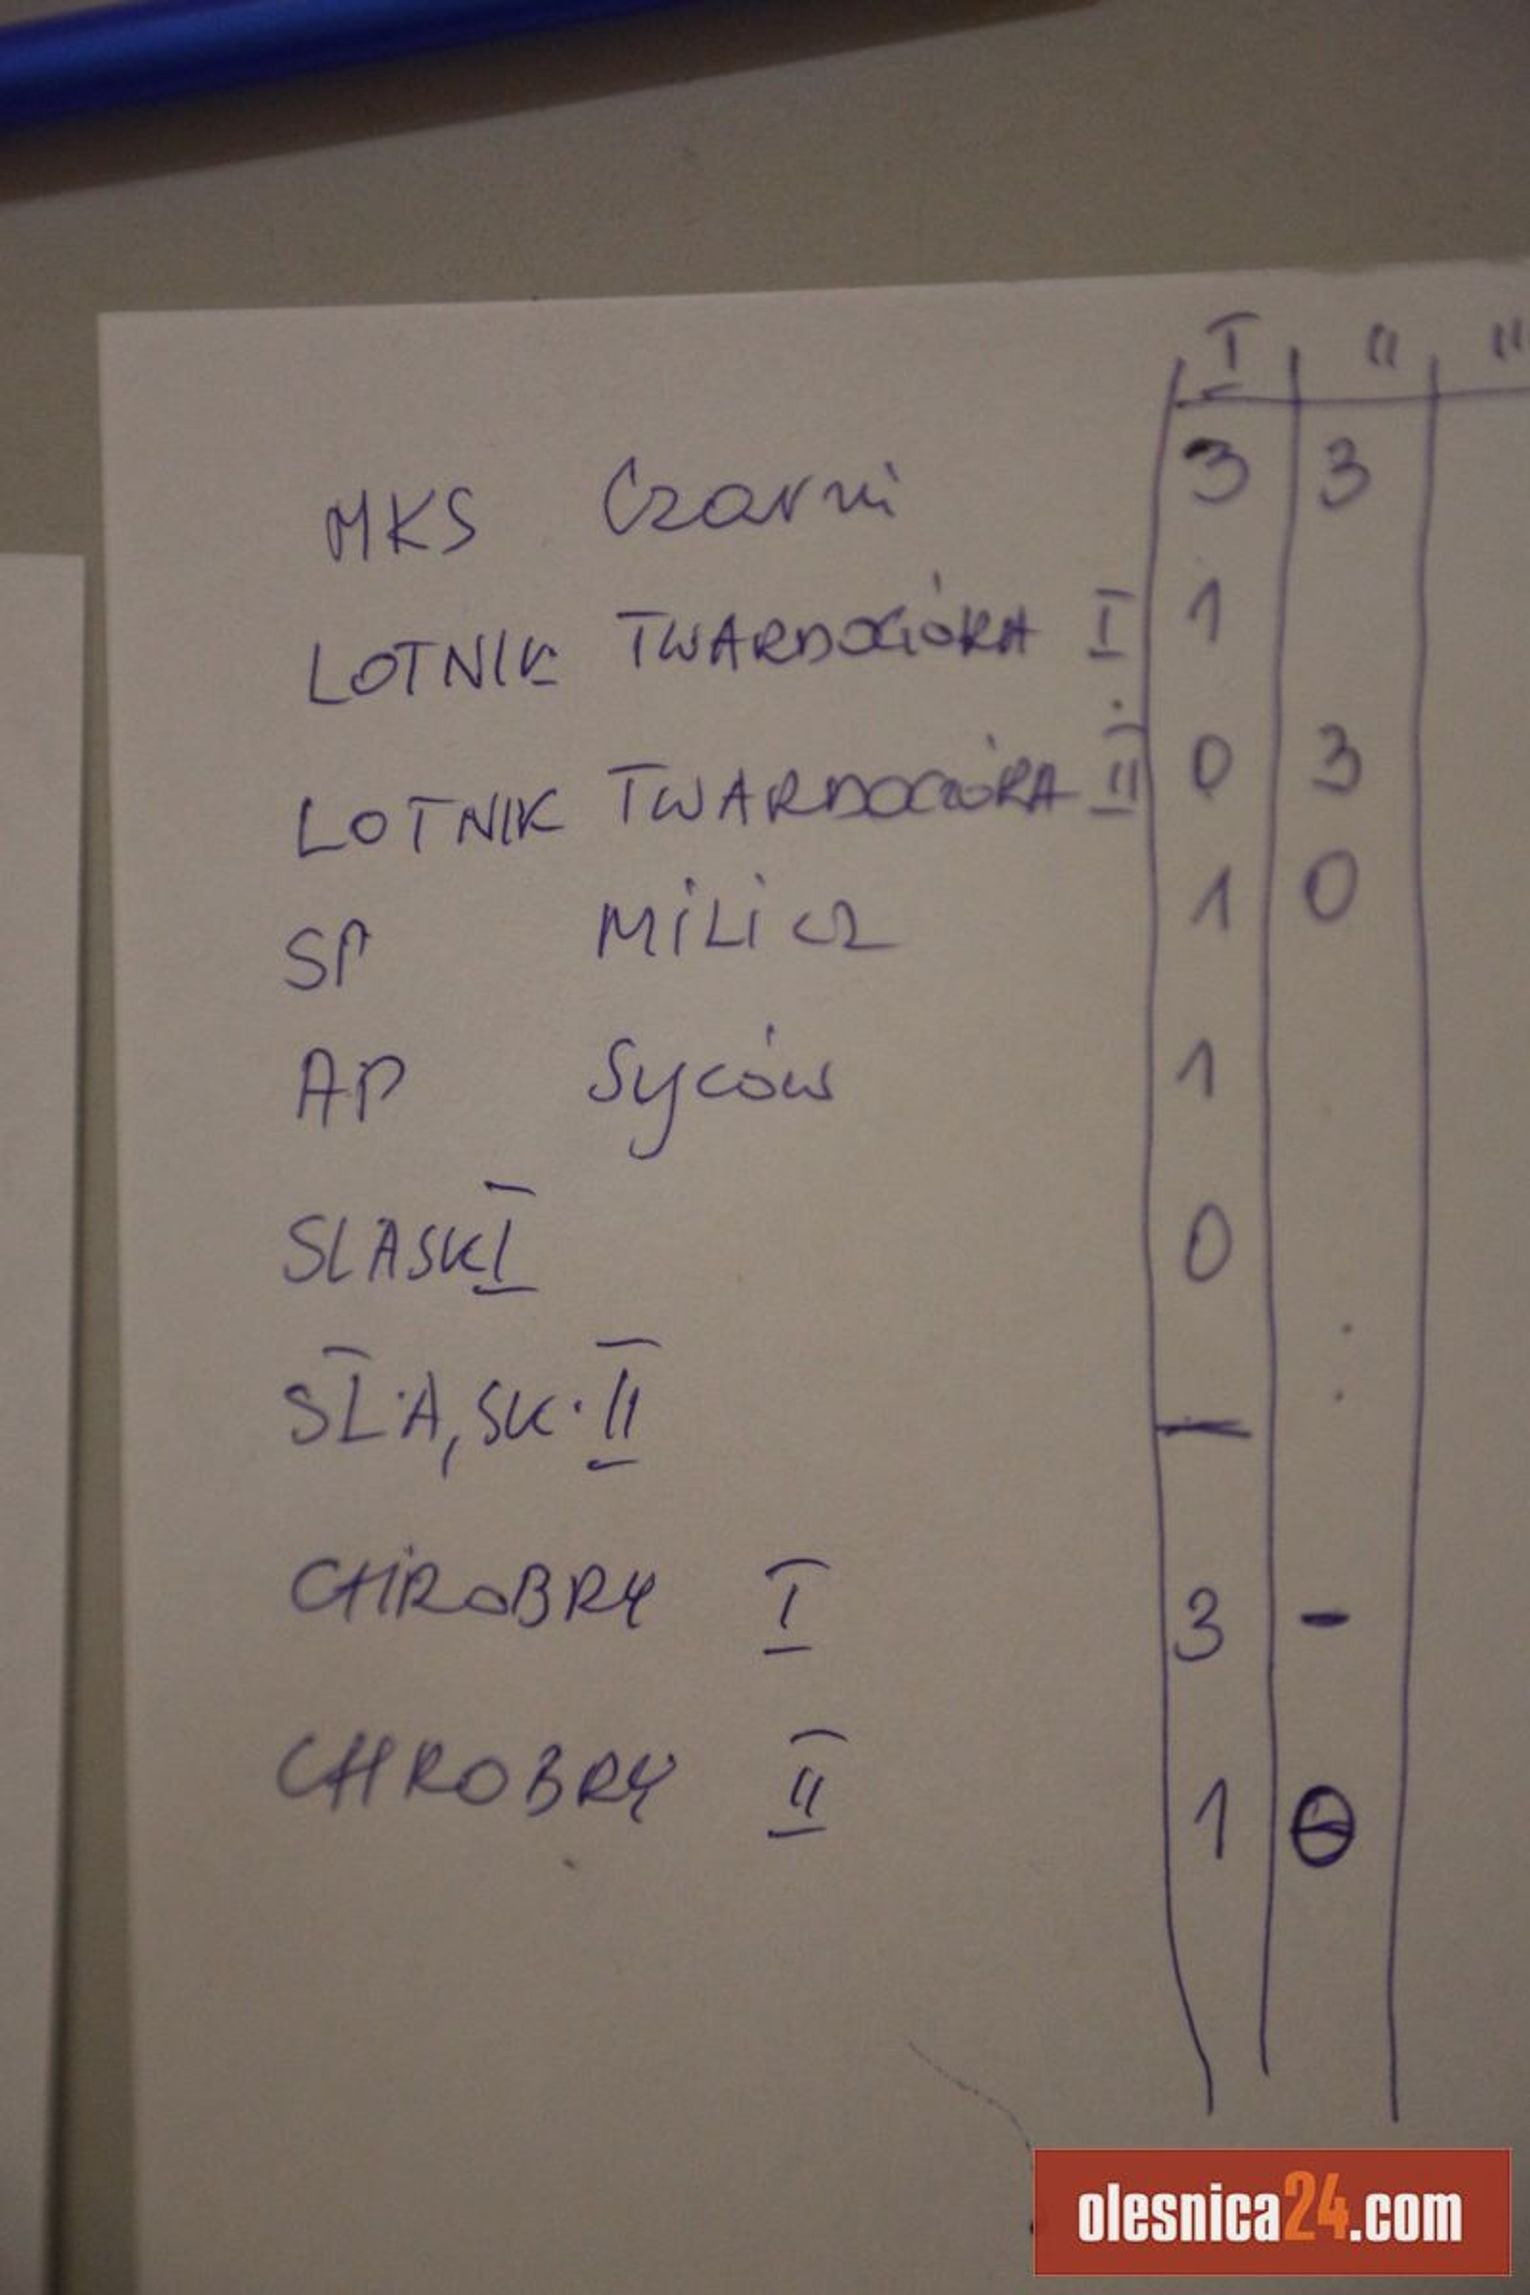 I II III
MKS Czarni 3 3
LOTNIK TWARDOGÓRA I 1
LOTNIK TWARDOGÓRA II 0 3
SP MiLicz 1 0
AP Syców 1
SLASK I 0
SLĄSK II —
CHROBRY I 3 -
CHROBRY II 1 0
olesnica24.com